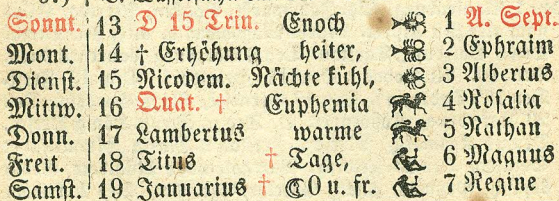 Sonnt. 13 D 15 Trin. Enoch 1 A. Sept.
Mont. 14 † Erhöhung heiter, 2 Ephraim
Dienst. 15 Nicodem. Nächte kühl, 3 Albertus
Mittw. 16 Quat. † Euphemia 4 Rosalia
Donn. 17 Lambertus warme 5 Nathan
Freit. 18 Titus † Tage, 6 Magnus
Samst. 19 Januarius † ☾0 u. fr. 7 Regine